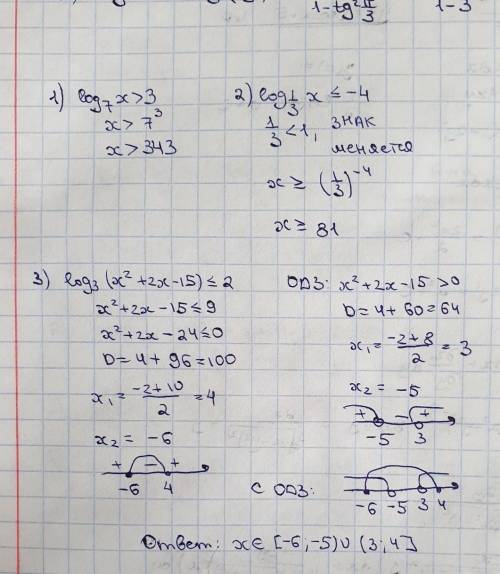 1-tg²π/3
1-3
1) log₇x>3
x>7³
x>343
2) log_{1/3} x ≤ -4
1/3<1, знак
меняется
x ≥ (1/3)⁻⁴
x ≥ 81
3) log₃(x²+2x-15)≤2
x²+2x-15≤9
x²+2x-24≤0
D=4+96=100
x₁=(-2+10)/2=4
x₂=-6
+ - +
-6 4
ОДЗ: x²+2x-15>0
D=4+60=64
x₁=(-2+8)/2=3
x₂=-5
+ - +
-5 3
С ОДЗ:
-6 -5 3 4
Ответ: x∈[-6,-5)∪(3;4]